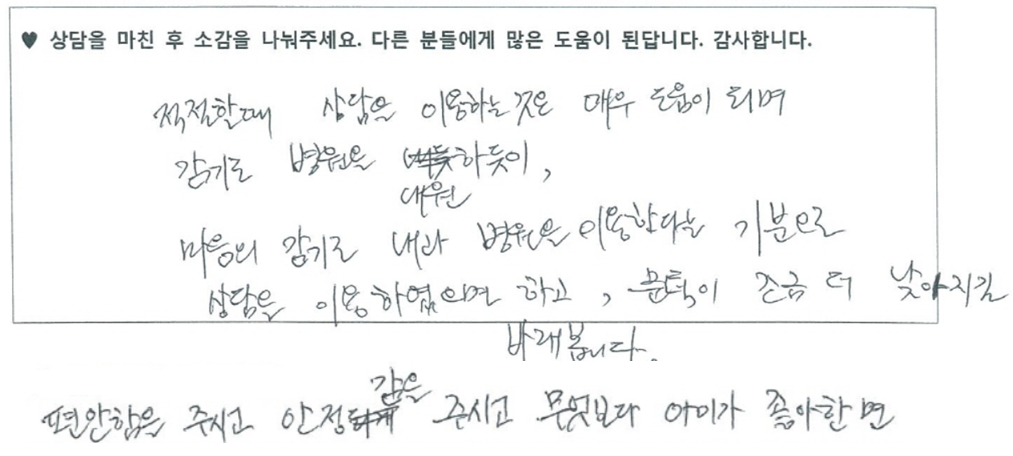 ♥ 상담을 마친 후 소감을 나눠주세요. 다른 분들에게 많은 도움이 된답니다. 감사합니다.
적절할때 상담을 이용하는 것은 매우 도움이 되며
감기로 병원을 내원하듯이,
마음의 감기로 내과 병원을 이용한다는 기분으로
상담을 이용하였으면 하고, 문턱이 조금 더 낮아지길
바래봅니다.
편안함을 주시고 안정감을 주시고 무엇보다 아이가 좋아한 면